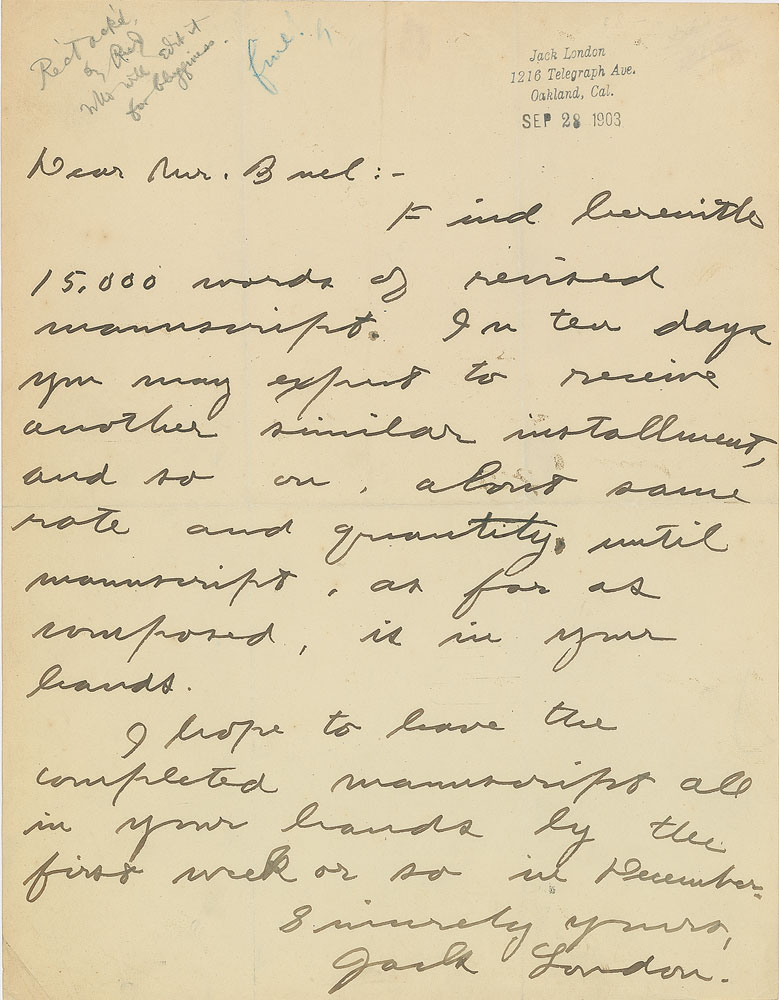 Rec'd ack'd.
by
who will edit it
for
Jack London
1216 Telegraph Ave.
Oakland, Cal.
SEP 28 1903
Dear Mr. Buel:-
Find herewith
15,000 words of revised
manuscript. In ten days
you may expect to receive
another similar installment,
and so on, about same
rate and quantity, until
manuscript, as far as
composed, is in your
hands.
I hope to have the
completed manuscript all
in your hands by the
first week or so in December.
Sincerely yours,
Jack London.